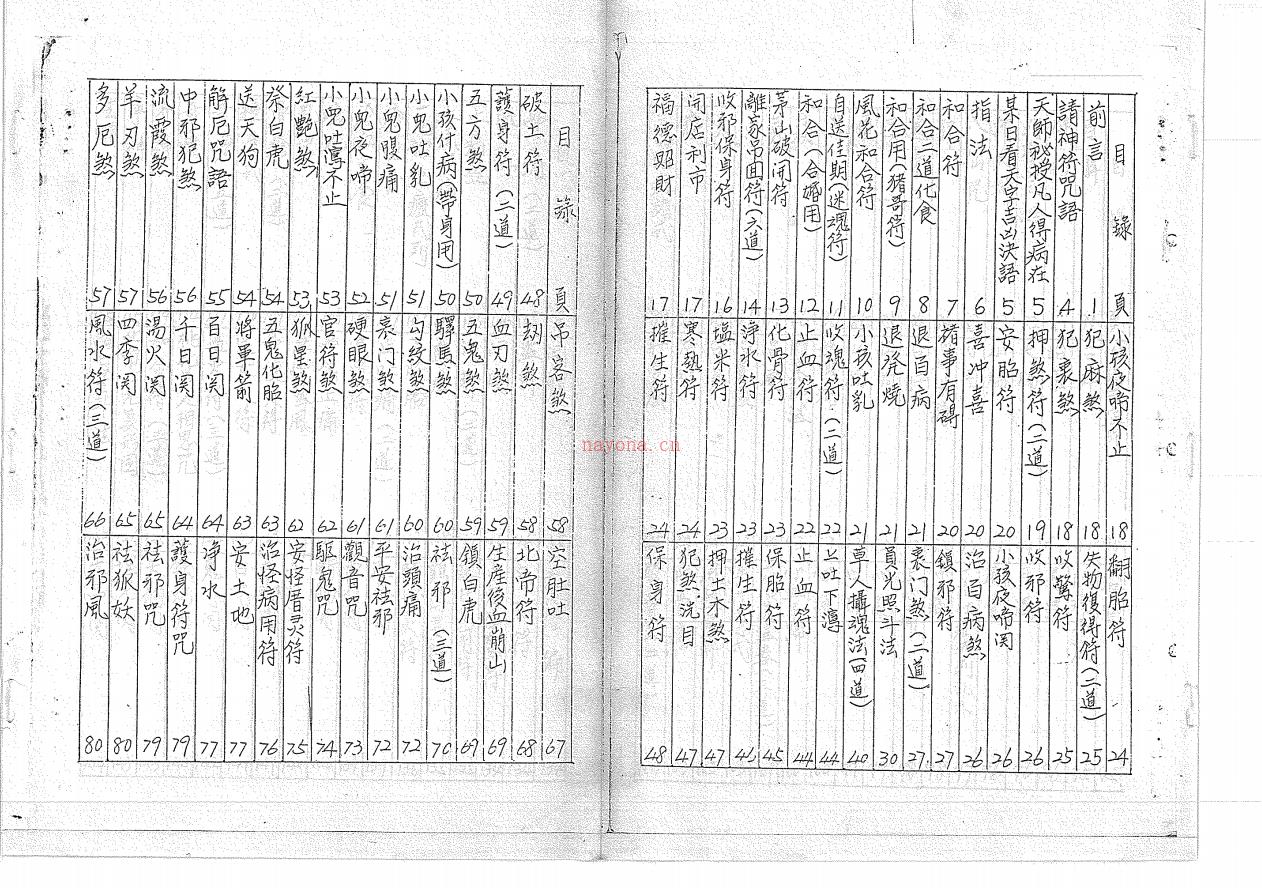 目錄 頁
前言 1
請神符咒語 4
天師祕授凡人得病在 5
某日看天字吉凶決語 5
指法 6
和合符 7
和合二道化食 8
和合用(豬哥符) 9
風花和合符 10
自送佳期(迷魂符) 11
和合(合婚用) 12
茅山破開符 13
離家吊回符(六道) 14
收邪保身符 16
開店利市 17
福德賜財 17
小孩夜啼不止 18
犯麻煞 18
犯喪煞 18
押煞符(二道) 19
安胎符 20
喜冲喜 20
諸事有碍 20
退百病 21
退発燒 21
小孩吐乳 21
收魂符(二道) 22
止血符 22
化骨符 23
淨水符 23
塩米符 23
寒熱符 24
摧生符 24
翻胎符 24
失物復得符(二道) 25
收驚符 25
收邪符 26
小孩夜啼関 26
治百病煞 26
鎮邪符 27
喪门煞(二道) 27
員光照斗法 30
草人攝魂法(四道) 40
上吐下瀉 44
止血符 44
保胎符 45
摧生符 46
押土木煞 47
犯煞洗目 47
保身符 48
目錄 頁
破土符 48
護身符(二道) 49
五方煞 50
小孩什病(帶身用) 50
小兒吐乳 51
小兒腹痛 51
小兒夜啼 52
小兒吐瀉不止 53
紅艷煞 53
祭白虎 54
送天狗 54
解厄咒語 55
中邪犯煞 56
流霞煞 56
羊刃煞 57
多厄煞 57
吊客煞 58
劫煞 58
血刃煞 59
五鬼煞 59
驛馬煞 60
勾絞煞 60
喪门煞 61
硬眼煞 61
官符煞 62
狐星煞 62
五鬼化胎 63
將軍箭 63
百日関 64
千日関 64
湯火関 65
四季関 65
風水符(三道) 66
空肚吐 67
北帝符 68
生産後血崩山 69
鎖白虎 69
祛邪(三道) 70
治頭痛 72
平安祛邪 72
觀音咒 73
驅鬼咒 74
安怪厝灵符 75
治怪病用符 76
安土地 77
净水 77
護身符咒 79
祛邪咒 79
祛狐妖 80
治邪風 80
nayona.cn